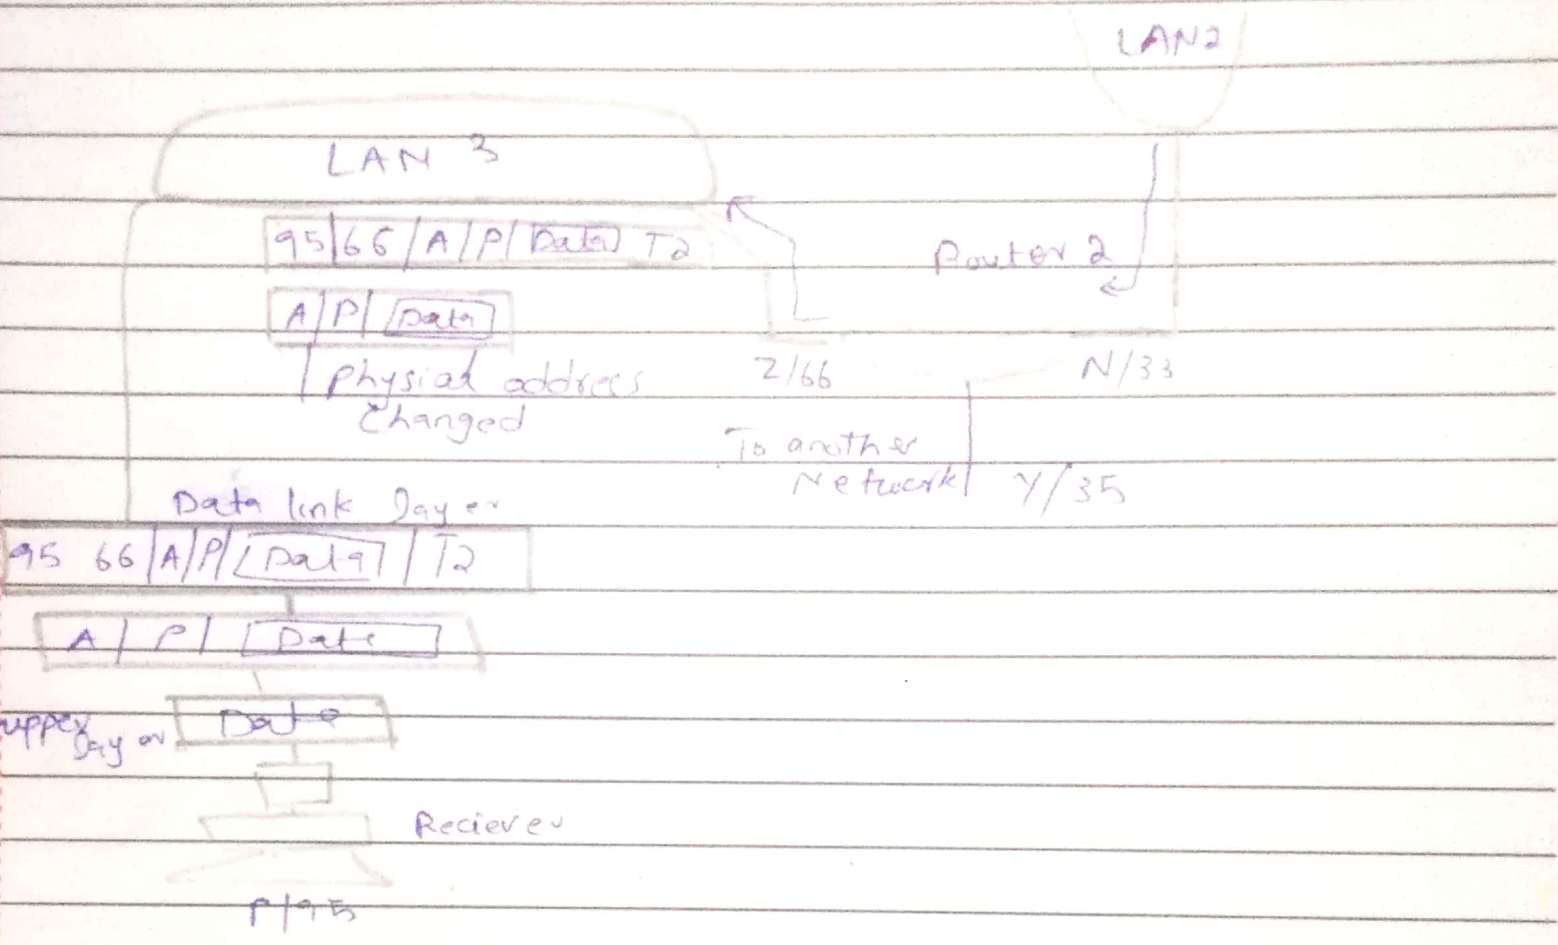 LAN2
LAN 3
95|66|A|P|Data T2
Router 2
A|P|Data
Physial addrees
Changed
Z/66
N/33
To another
Network
Y/35
Data link layer
95 66|A|P|Data|T2
A|P|Data
upper
layer
Data
Reciever
P/95